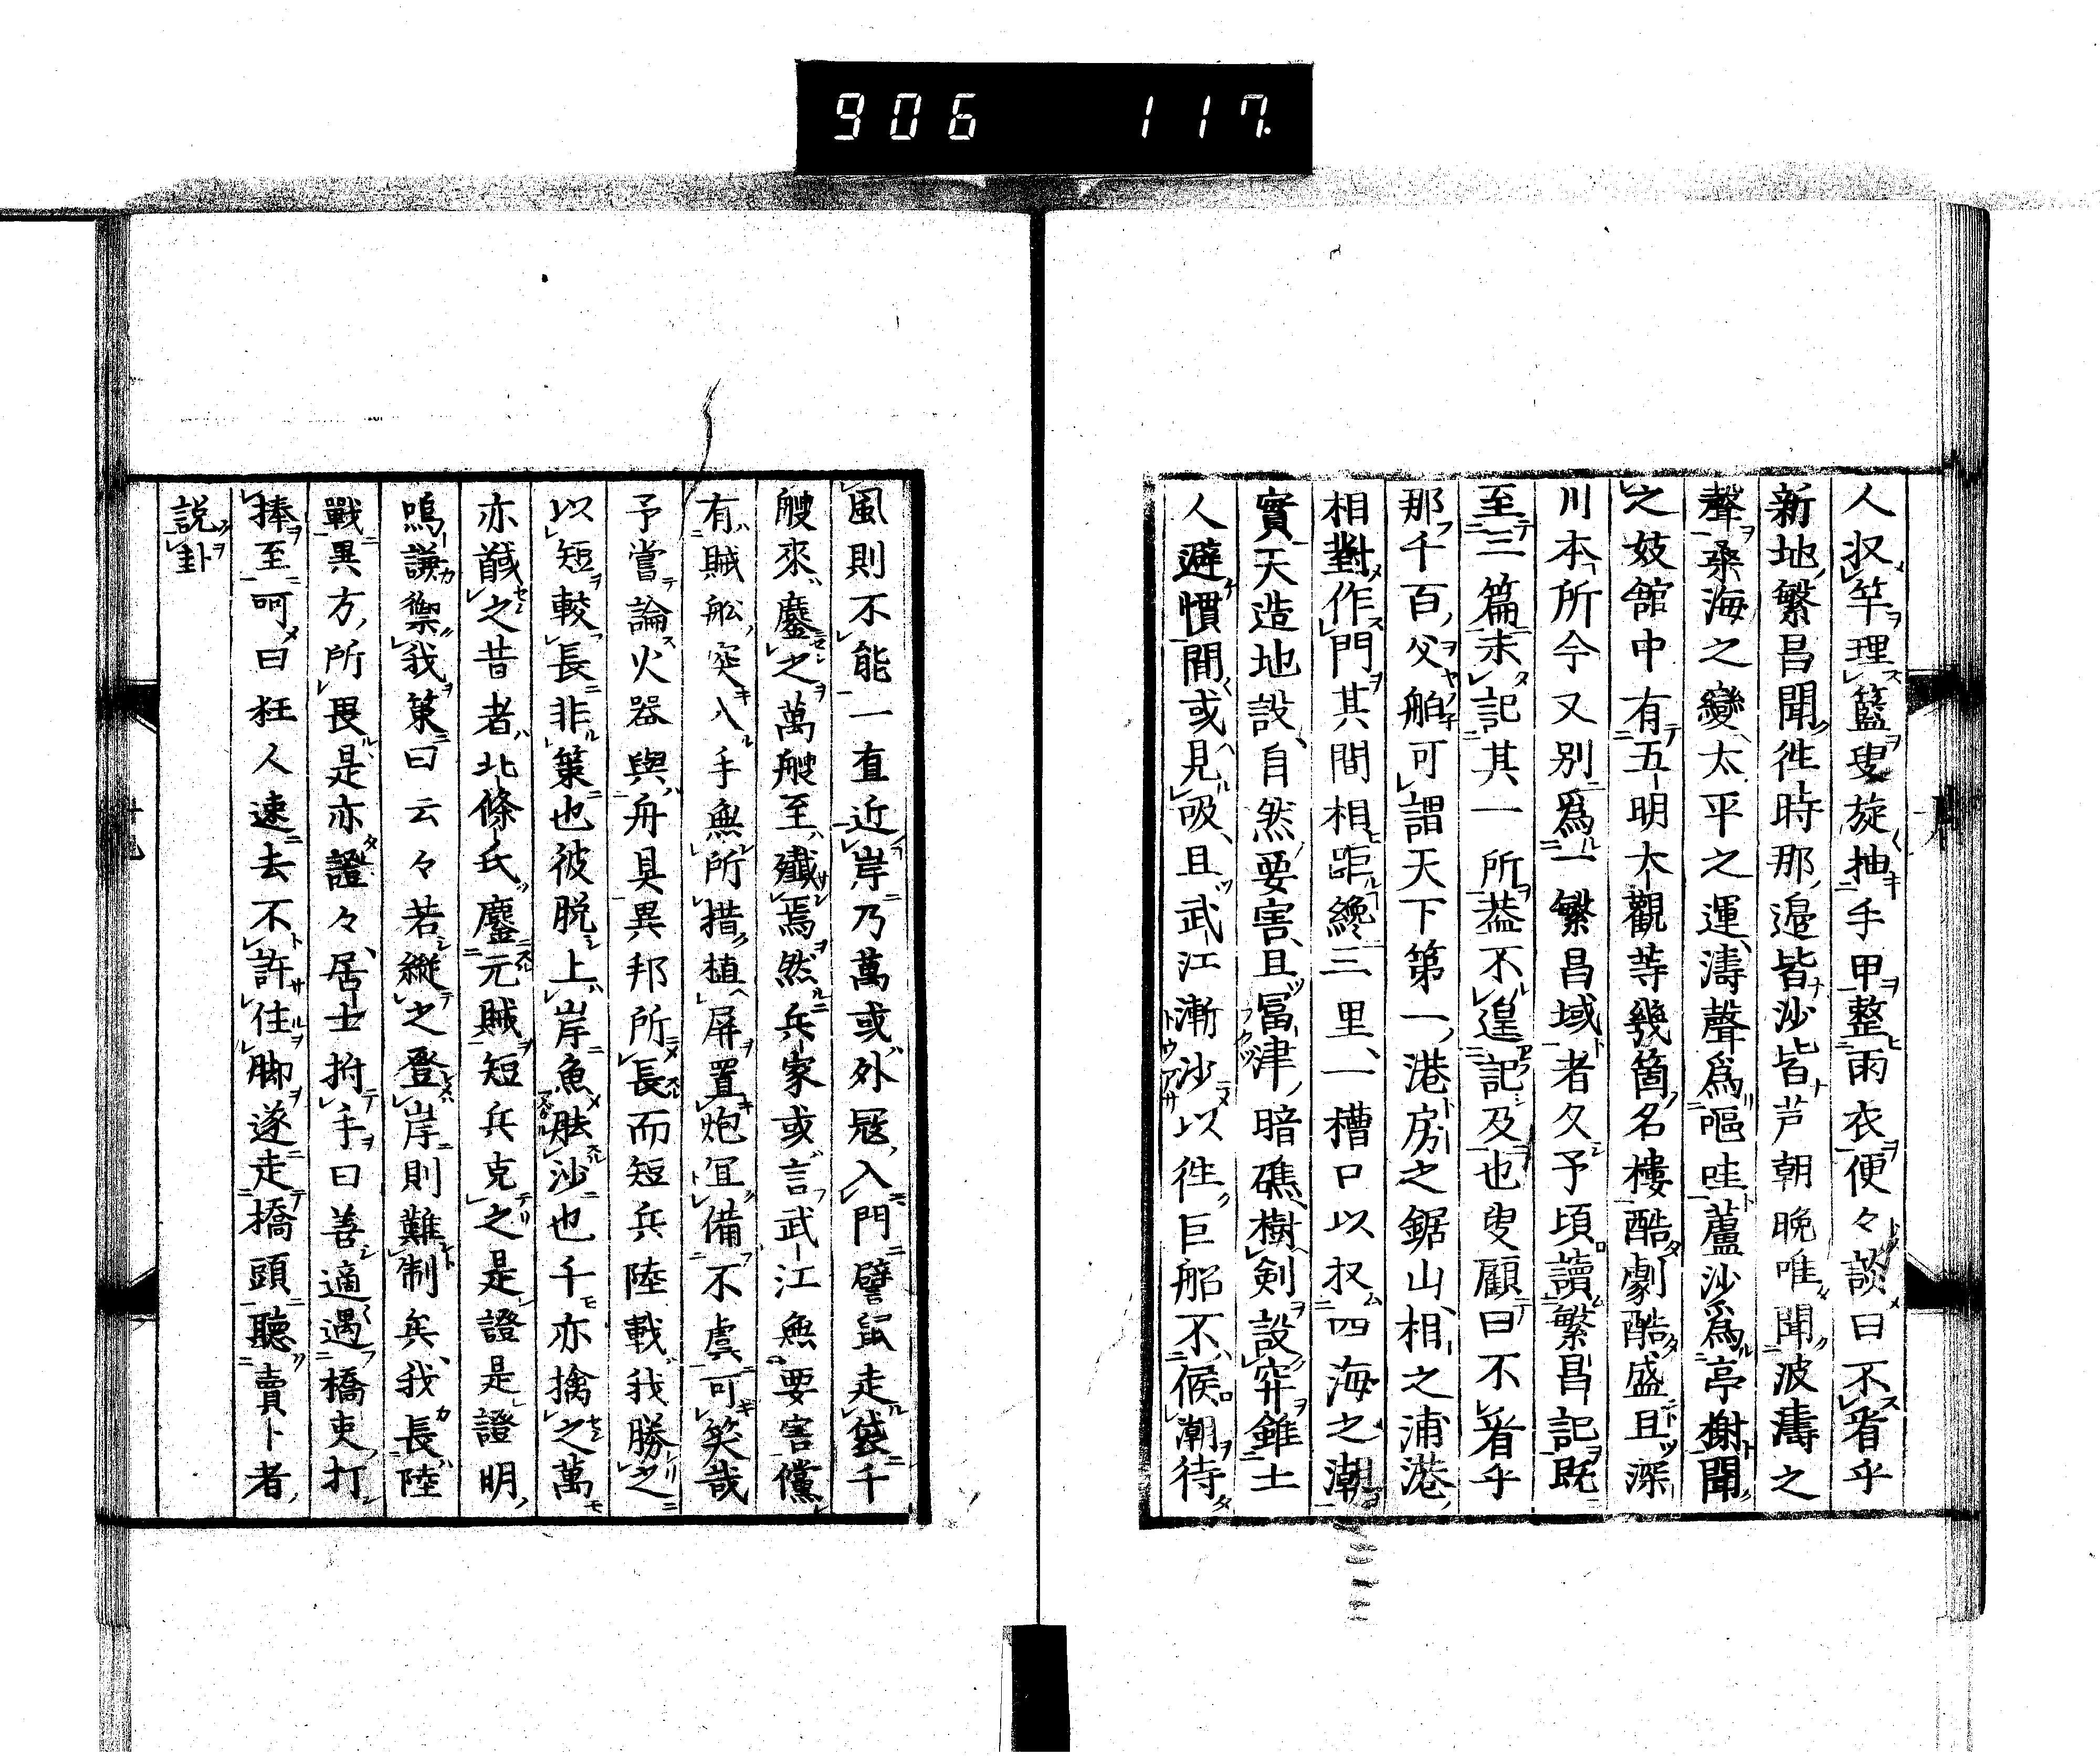 906 117
人収竿理籃叟旋抽手甲整雨衣便々談曰不看乎
新地繁昌聞徃時那邉皆沙皆芦朝晩唯聞波濤之
聲桑海之變太平之運濤聲爲嘔哇蘆沙爲亭榭聞
之妓館中有五明大觀等幾箇名樓酷劇酷盛且深
川本所今又別爲一繁昌域者久予頃讀繁昌記既
至三篇未記其一所葢不遑記及也叟顧曰不看乎
那千百父舶可謂天下第一港房之鋸山相之浦港
相對作門其間相距纔三里一槽口以扠四海之潮
實天造地設自然要害且冨津暗礁樹剣設穽雖土
人避慣間或見吸且武江漸沙以徃巨船不候潮待
風則不能一直近岸乃萬或外冦入門譬鼠走袋千
艘來鏖之萬艘至殱焉然兵家或言武江無要害儻
有賊舩突入手無所措植屏置炮冝備不虞可笑哉
予嘗論火器與舟具異邦所長而短兵陸戰我勝之
以短較長非策也彼脱上岸魚胠沙也千亦擒之萬
亦馘之昔者北條氏鏖元賊短兵克之是證是證明
鳴謙禦我策曰云々若縱之登岸則難制矣我長陸
戰異方所畏是亦證々居士拊手曰善適遇橋吏打
捧至呵曰狂人速去不許住脚遂走橋頭聽賣卜者
説卦